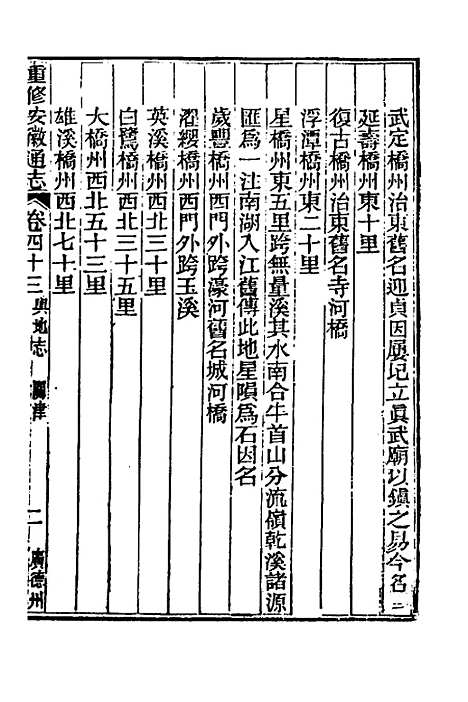 武定橋州治東舊名迎貞因屢圮立眞武廟以鎭之易今名二
延壽橋州東十里
復古橋州治東舊名寺河橋
浮潭橋州東二十里
星橋州東五里跨無量溪其水南合牛首山分流嶺乾溪諸源
匯爲一注南湖入江舊傳此地星隕爲石因名
歲豐橋州西門外跨濠河舊名城河橋
濯纓橋州西門外跨玉溪
英溪橋州西北三十里
白鷺橋州西北三十五里
大橋州西北五十三里
雄溪橋州西北七十里
重修安徽通志 卷四十三 輿地志 關津 二 廣德州